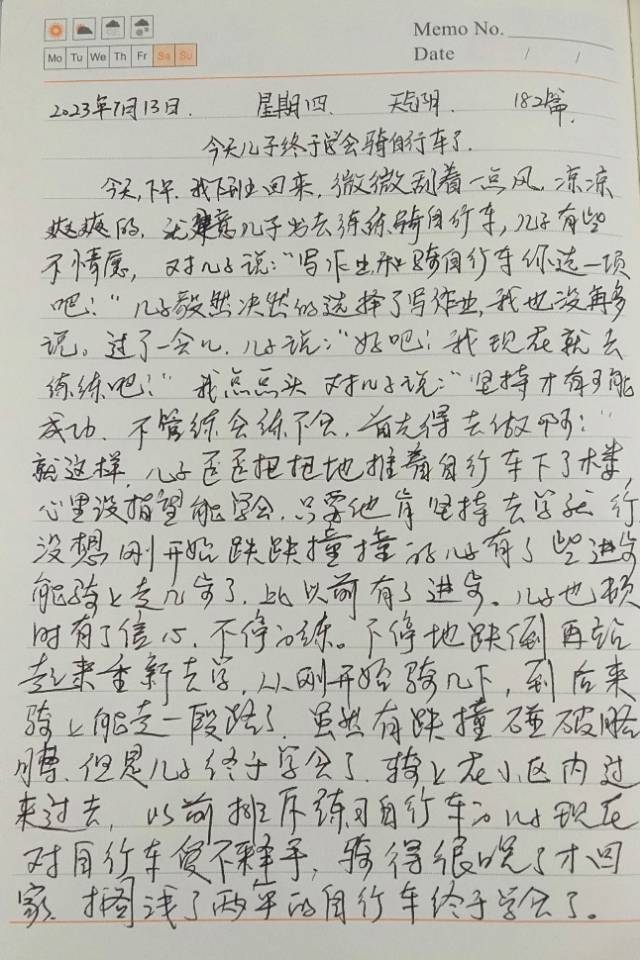 Memo No.
Mo Tu We Th Fr Sa Su
Date / /
2023年7月13日. 星期四. 天气阴. 182篇.
今天儿子终于学会骑自行车了.
今天,下午.我下班回来,微微刮着一点风,凉凉
爽爽的, 建意儿子出去练练骑自行车,儿子有些
不情愿, 对儿子说:“写作业和骑自行车你选一项
吧!” 儿子毅然决然的选择了写作业,我也没再多
说。过了一会儿.儿子说:“好吧!我现在就去
练练吧!” 我点点头 对儿子说:“坚持才有可能
成功. 不管练会练不会.首先得去做啊!”
就这样,儿子歪歪扭扭地推着自行车下了楼,
心里没指望能学会.只要他肯坚持去学就行
没想刚开始跌跌撞撞的儿子有了些进步
能骑上走几步了.比以前有了进步。儿子也顿
时有了信心.不停的练。不停地跌倒再站
起来重新去学,从刚开始骑几下,到后来
骑上能走一段路了. 虽然有跌撞碰破胳
膊.但是儿子终于学会了.骑上在小区内过
来过去, 以前排斥练习自行车的儿子现在
对自行车爱不释手, 骑得很晚了才回
家. 搁浅了两年的自行车终于学会了。